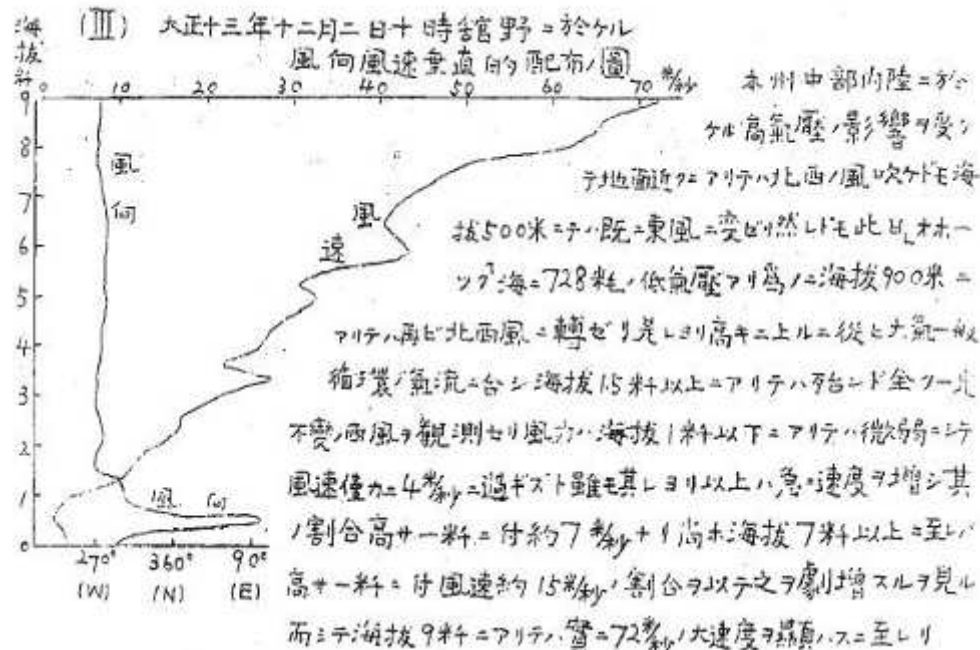 (III) 大正十三年十二月二日十時舘野ニ於ケル
風向風速垂直的配布ノ圖
海拔粁
0 10 20 30 40 50 60 70 米/秒
9
8
7
6
5
4
3
2
1
0
風向
風速
風向
270° 360° 90°
(W) (N) (E)
本州中部内陸ニ於
ケル高氣壓ノ影響ヲ受ケ
テ地面近クニアリテハ北西ノ風吹ケドモ海
拔500米ニテハ既ニ東風ニ変ゼリ然レドモ此日オホー
ツク海ニ728粍ノ低氣壓アリ爲ノニ海拔900米ニ
アリテハ再ビ北西風ニ轉ゼリ是レヨリ高キニ上ルニ從ヒ大氣一般
循環ノ氣流ニ合シ海拔1.5粁以上ニアリテハ殆ンド全ク一定
不變ノ西風ヲ観測セリ風力ハ海拔1粁以下ニアリテハ微弱ニシテ
風速僅カニ4米/秒ニ過ギズト雖モ其レヨリ以上ハ急ニ速度ヲ增シ其
ノ割合高サ一粁ニ付約7米/秒ナリ尚ホ海拔7粁以上ニ至レバ
高サ一粁ニ付風速約15米/秒ノ割合ヲ以テ之ヲ劇增スルヲ見ル
而シテ海拔9粁ニアリテハ實ニ72米/秒ノ大速度ヲ顯ハスニ至レリ